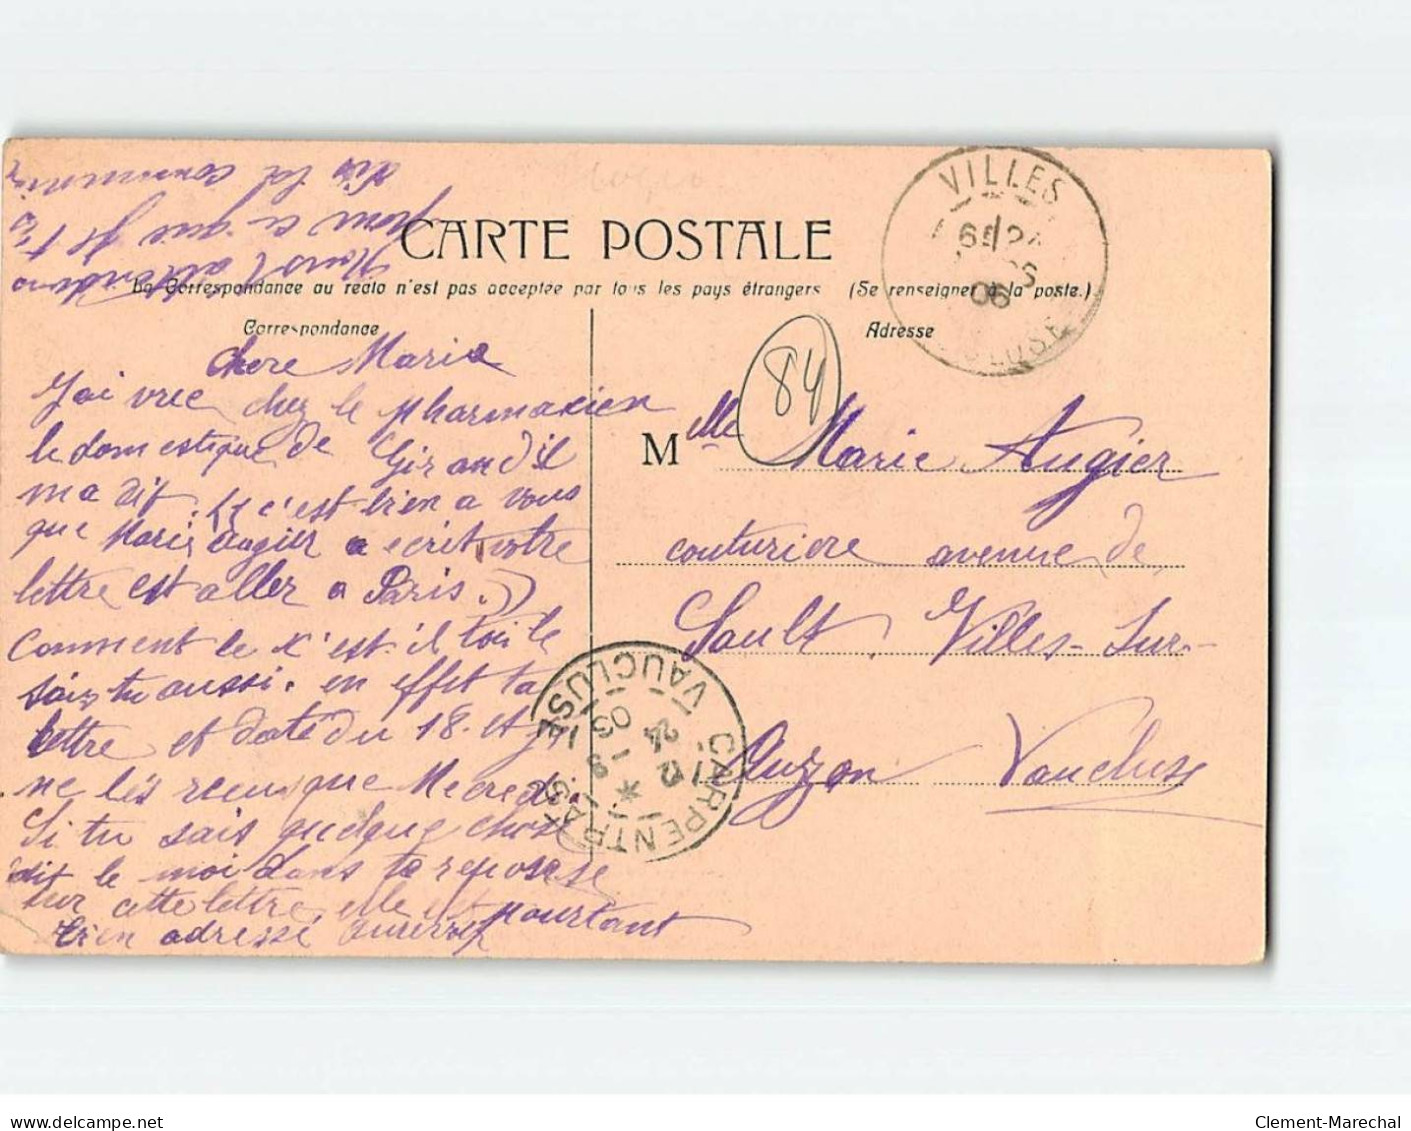 CARTE POSTALE
La Correspondance au recto n'est pas acceptée par tous les pays étrangers (Se renseigner à la poste.)
Correspondance
Adresse
chere Marie
J'ai vue chez le pharmacien
le domestique de Girand il
ma dit. c'est bien a vous
que Marie augier a ecrit votre
lettre est aller a Paris.)
Comment le c'est il toi le
sais tu aussi. en effet ta
lettre et daté du 18. et je
ne l'es recu que Mecredi.
Si tu sais quelque chose
dit le moi dans ta reponse
sur cette lettre, elle est pourtant
bien adresse
pour ce que je t'ès
dis la
84
Mlle Marie Augier
couturiere avenue de
Sault. Villes-Sur-
Auzon Vaucluse
VILLES
24
06
CARPENTRAS
VAUCLUSE
24
06
Clement-Marechal
delcampe.net